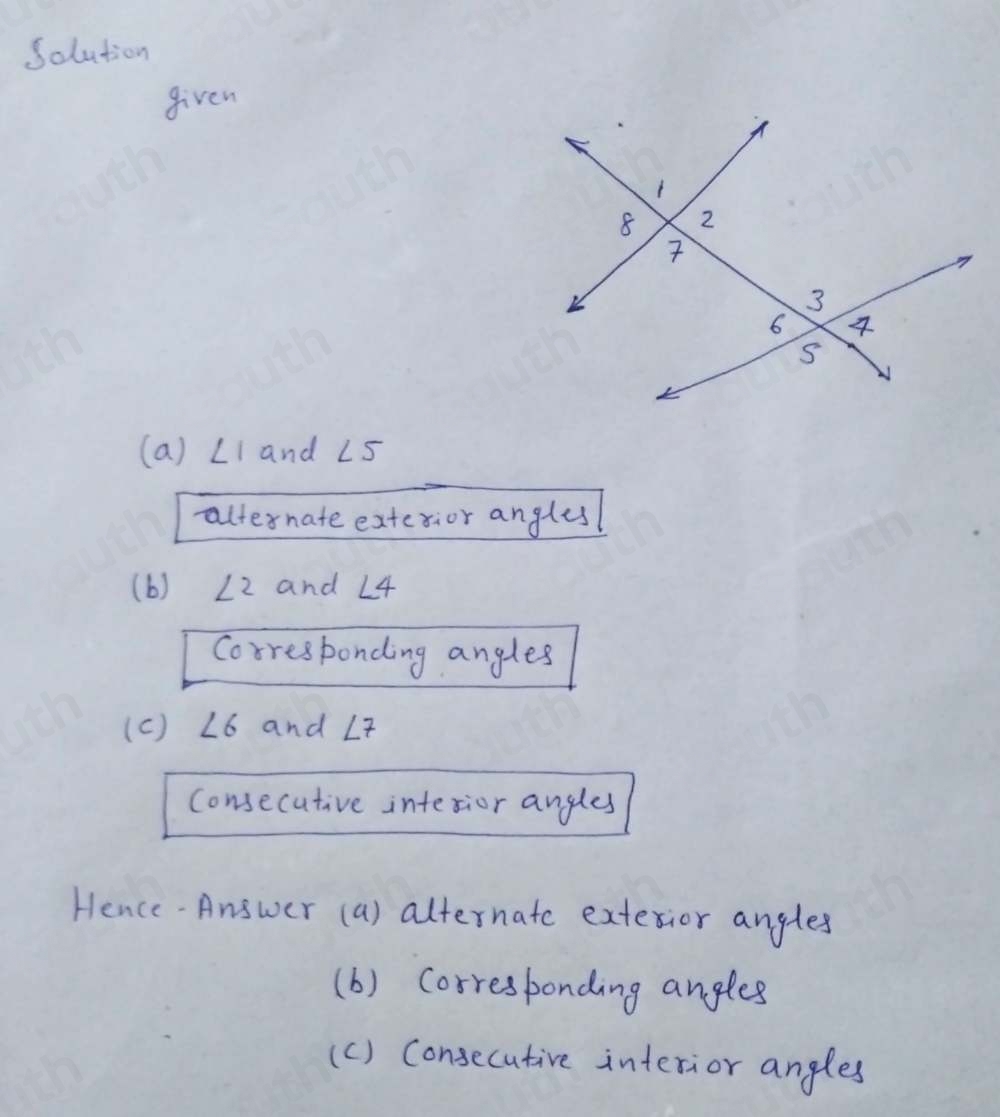 Solution
given
1
8 2
7
3
6 4
5
(a) ∠1 and ∠5
alternate exterior angles
(b) ∠2 and ∠4
Corresponding angles
(c) ∠6 and ∠7
Consecutive interior angles
Hence - Answer (a) alternate exterior angles
(b) Corresponding angles
(c) Consecutive interior angles